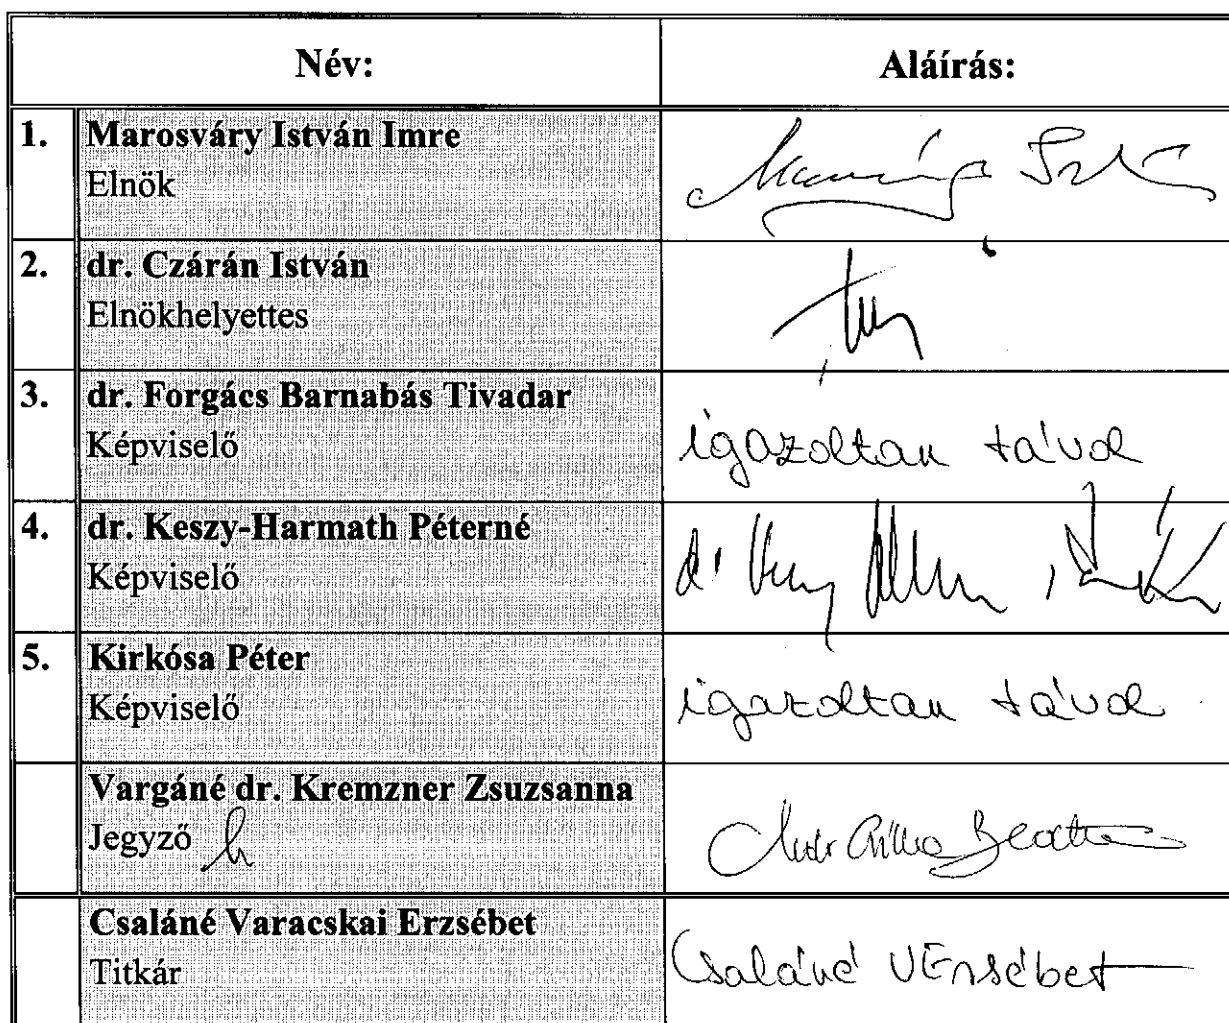 Név: Aláírás:
1. Marosváry István Imre
Elnök
2. dr. Czárán István
Elnökhelyettes
3. dr. Forgács Barnabás Tivadar
Képviselő
igazoltan távol
4. dr. Keszy-Harmath Péterné
Képviselő
5. Kirkósa Péter
Képviselő
igazoltan távol
Vargáné dr. Kremzner Zsuzsanna
Jegyző
Csaláné Varacskai Erzsébet
Titkár
Csaláné VErzsébet